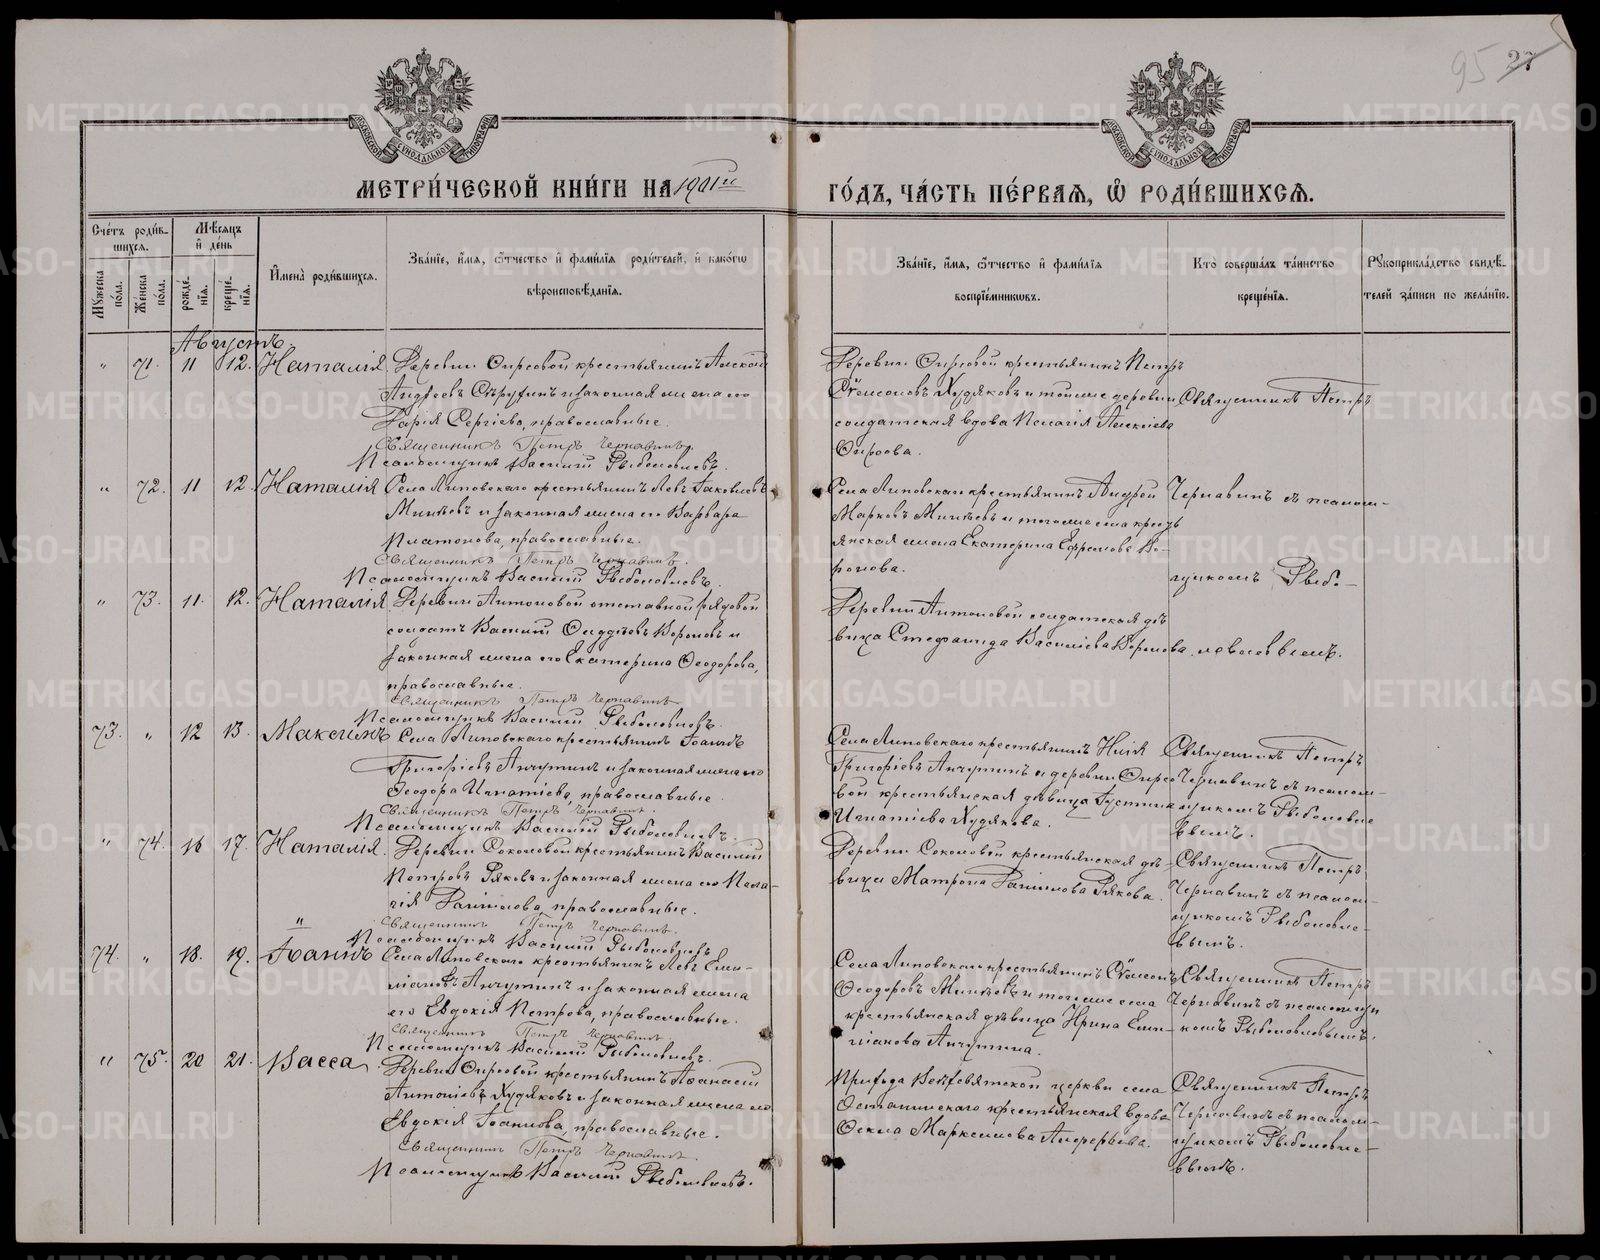 95 27
МЕТРИ́ЧЕСКОЙ КНИ́ГИ НА 1901й
ГО́ДЪ, ЧА́СТЬ ПЕ́РВАѦ, Ѿ РОДИ́ВШИХСѦ.
Сче́тъ роди́вшихся.
Мꙋжеска по́ла.
Же́нска по́ла.
Мѣ́сяцъ и де́нь
рожде́нїя.
креще́нїя.
Имена̀ роди́вшихся.
Зва́нїе, и́мя, ѻ́тчество и фами́лїя роди́телей, и како́гѡ
вѣроисповѣ́данїя.
Зва́нїе, и́мя, ѻ́тчество и фами́лїя
воспрїе́мникѡвъ.
Кто̀ соверша́лъ та́инство
креще́нїя.
Рꙋкоприкла́дство свидѣ́-
телей за́писи по жела́нїю.
Августъ.
" 71. 11 12. Наталія
Андреевъ и законная жена его
Дарія Сергіева, православные.
Священникъ Петръ Чернавинъ.
Псаломщикъ Василій Рыболовлевъ.
Деревни крестьянинъ Петръ
Сѵмеоновъ Худяковъ и тоя же деревни
солдатская вдова Пелагія Алексіева
Священникъ Петръ
" 72. 11 12. Наталія
Села Липовскаго крестьянинъ Левъ Іаковлевъ
Минѣевъ и законная жена его Варвара
Платонова, православные.
Священникъ Петръ Чернавинъ.
Псаломщикъ Василій Рыболовлевъ.
Села Липовскаго крестьянинъ Андрей
Марковъ Минѣевъ и того же села кресть
янская жена Екатерина Ефремова Во-
ронова.
Чернавинъ съ псалом-
щикомъ Рыбо-
" 73. 11. 12. Наталія
Деревни Антоновой отставной рядовой
солдатъ Василій Вороновъ и
законная жена его Екатерина Ѳеодорова,
православные.
Священникъ Петръ Чернавинъ
Псаломщикъ Василій Рыболовлевъ.
Деревни Антоновой солдатская дѣ
вица Стефанида Василіева Воронова.
ловлевымъ.
73. " 12 13. Максимъ
Села Липовскаго крестьянинъ Іоаннъ
Григоріевъ Анчутинъ и законная жена его
Ѳеодора Игнатіева, православные.
Священникъ Петръ Чернавинъ.
Псаломщикъ Василій Рыболовлевъ.
Села Липовскаго крестьянинъ Илія
Григоріевъ Анчутинъ и деревни
вой крестьянская дѣвица Іустина
Игнатіева Худякова.
Священникъ Петръ
Чернавинъ съ псалом-
щикомъ Рыболовле
вымъ.
" 74. 16 17. Наталія.
Деревни Соколовой крестьянинъ Василій
Петровъ Ряковъ и законная жена его Пела-
гія Даніилова, православные.
Священникъ Петръ Чернавинъ.
Псаломщикъ Василій Рыболовлевъ
Деревни Соколовой крестьянская дѣ-
вица Матрона Даніилова Рякова.
Священникъ Петръ
Чернавинъ съ псалом-
щикомъ Рыболовле-
вымъ.
74. " 18. 19. Іоаннъ
Села Липовскаго крестьянинъ Левъ Еми-
ліановъ Анчутинъ и законная жена
его Евдокія Петрова, православные.
Священникъ Петръ Чернавинъ.
Псаломщикъ Василій Рыболовлевъ.
Села Липовскаго крестьянинъ Сѵмеонъ
Ѳеодоровъ Минѣевъ и того же села
крестьянская дѣвица Ирина Еми-
ліанова Анчутина.
Священникъ Петръ
Чернавинъ съ псаломщи
комъ Рыболовлевымъ.
" 75. 20 21. Васса
Деревни крестьянинъ Аѳанасій
Антоніевъ Худяковъ и законная жена его
Евдокія Іоаннова, православные.
Священникъ Петръ Чернавинъ.
Псаломщикъ Василій Рыболовлевъ.
Прихода церкви села
Останинскаго крестьянская вдова
Ѳекла Максимова
Священникъ Петръ
Чернавинъ съ псалом-
щикомъ Рыболовле-
вымъ.
METRIKI.GASO-URAL.RU